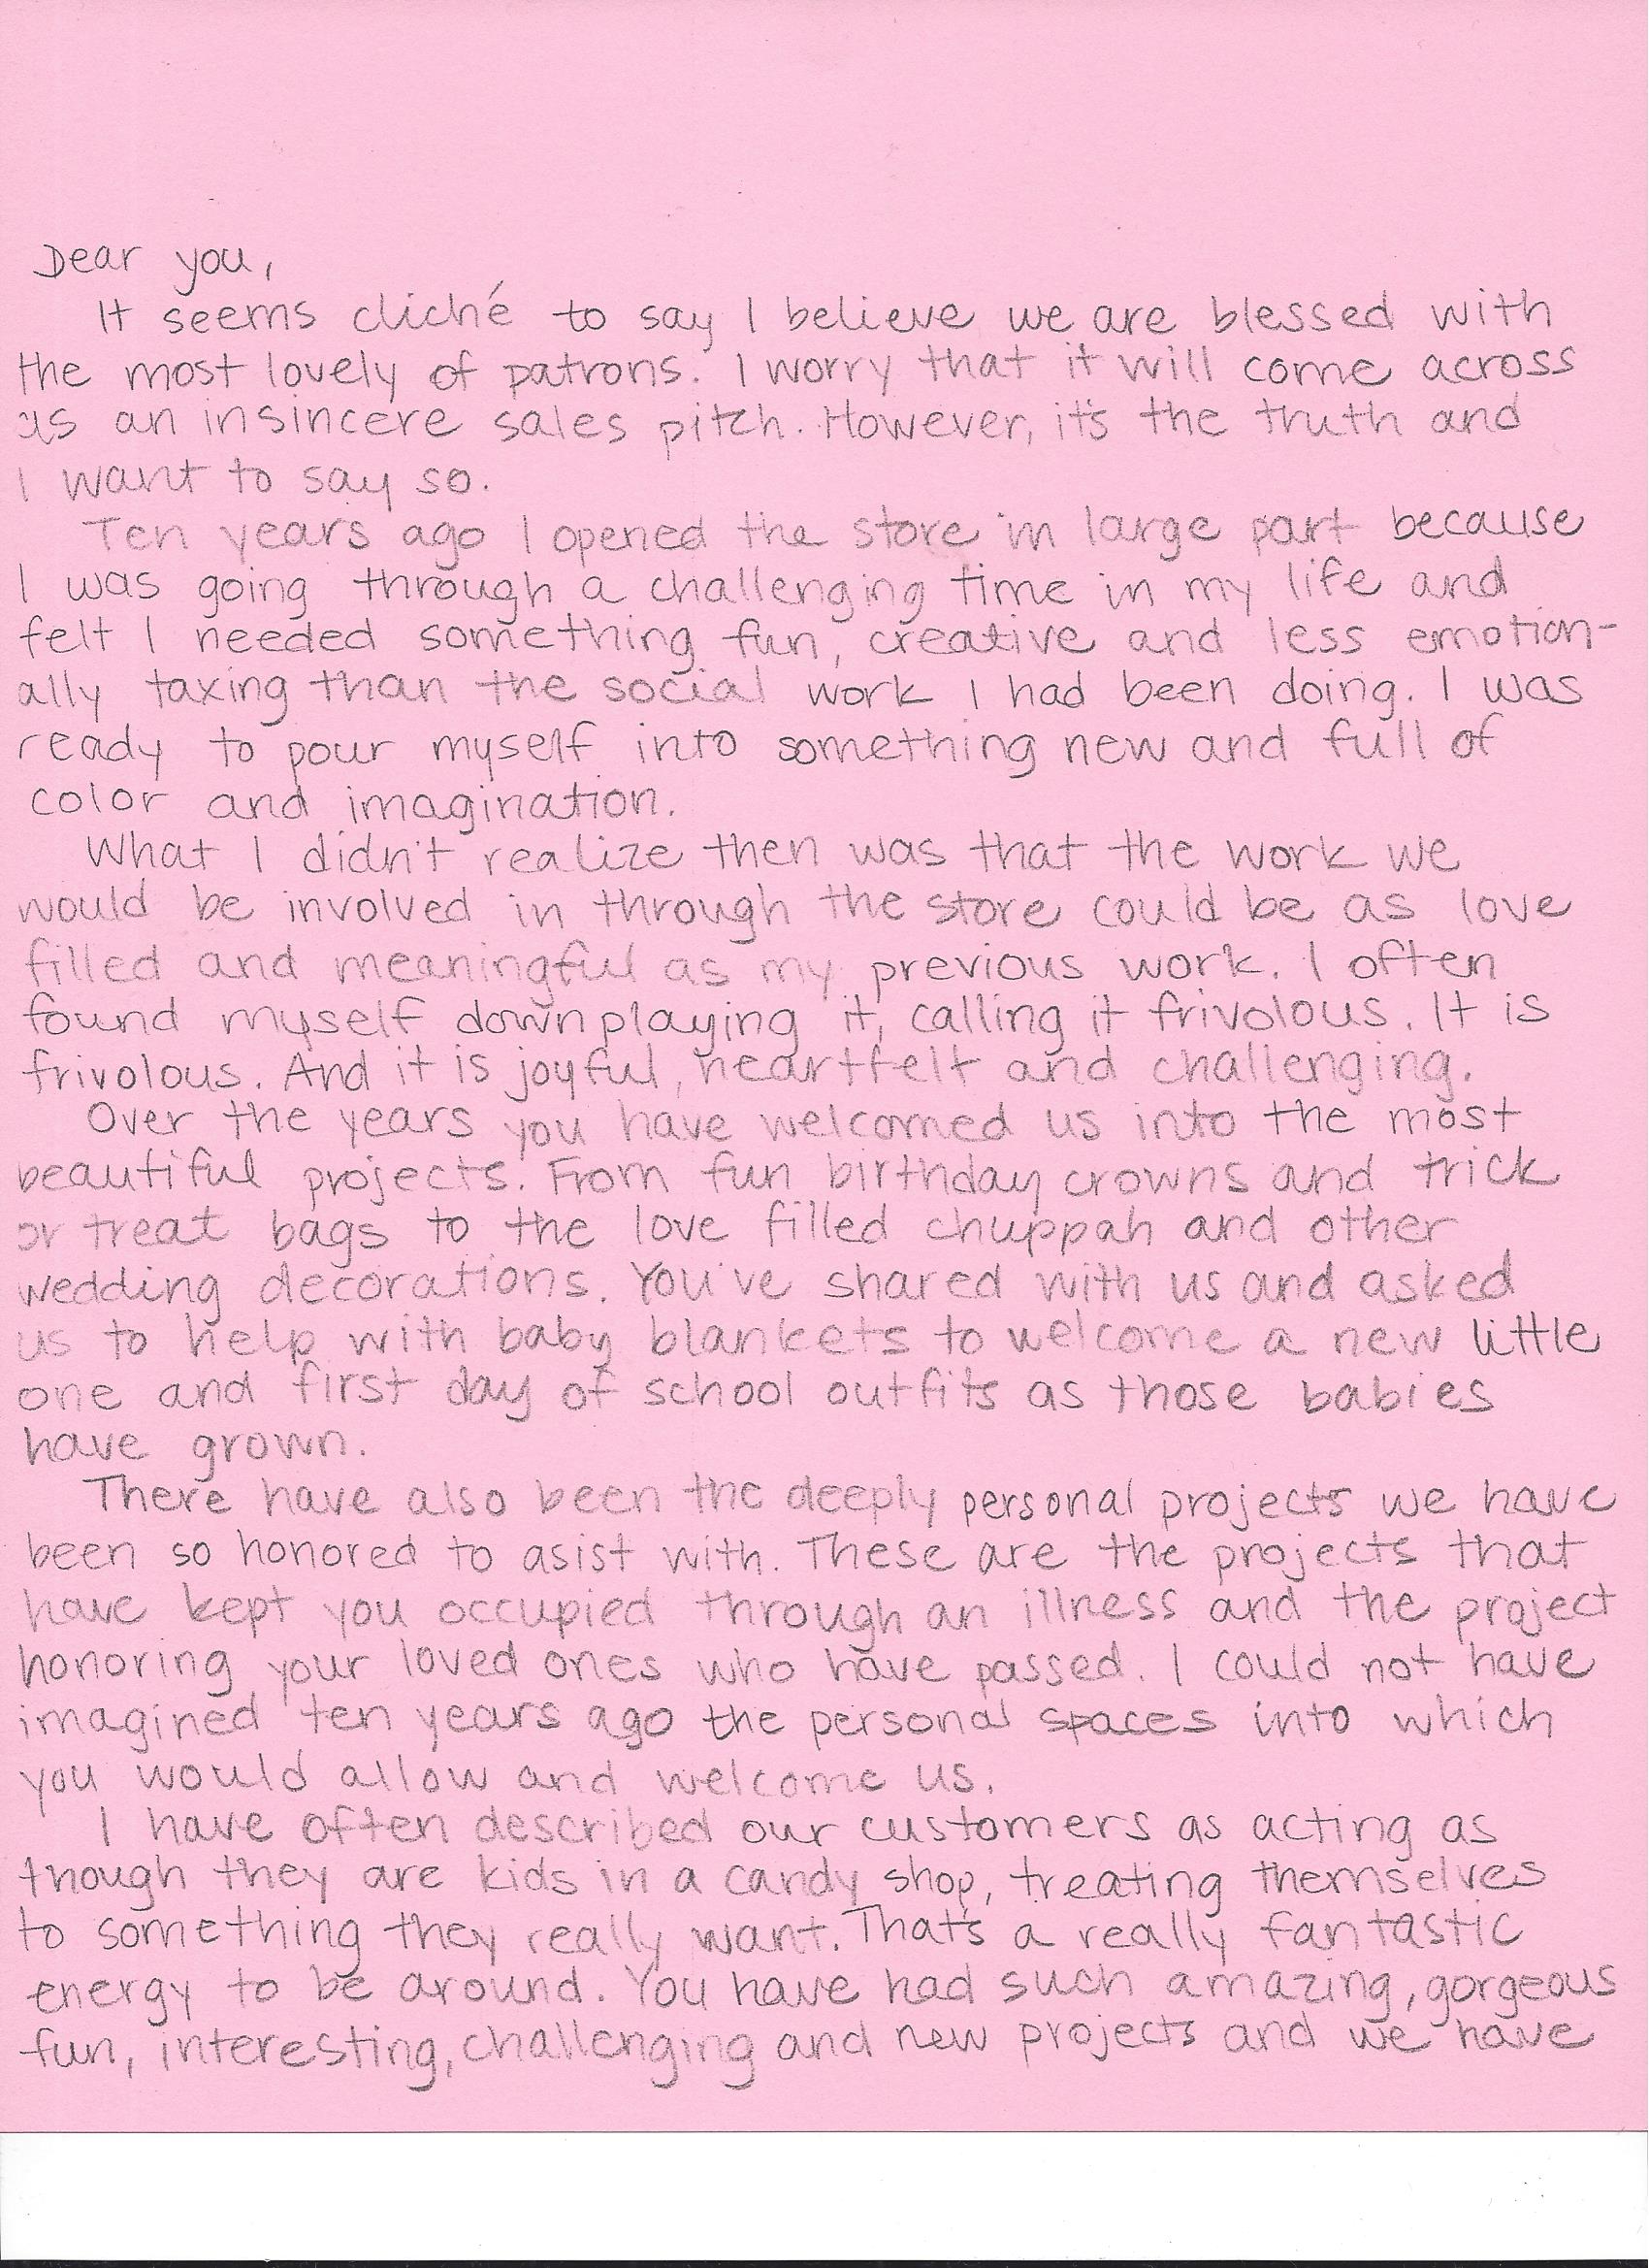 Dear you,
It seems cliché to say I believe we are blessed with
the most lovely of patrons. I worry that it will come across
as an insincere sales pitch. However, it's the truth and
I want to say so.
Ten years ago I opened the store in large part because
I was going through a challenging time in my life and
felt I needed something fun, creative and less emotion-
ally taxing than the social work I had been doing. I was
ready to pour myself into something new and full of
color and imagination.
What I didn't realize then was that the work we
would be involved in through the store could be as love
filled and meaningful as my previous work. I often
found myself downplaying it, calling it frivolous. It is
frivolous. And it is joyful, heartfelt and challenging.
Over the years you have welcomed us into the most
beautiful projects. From fun birthday crowns and trick
or treat bags to the love filled chuppah and other
wedding decorations. You've shared with us and asked
us to help with baby blankets to welcome a new little
one and first day of school outfits as those babies
have grown.
There have also been the deeply personal projects we have
been so honored to asist with. These are the projects that
have kept you occupied through an illness and the project
honoring your loved ones who have passed. I could not have
imagined ten years ago the personal spaces into which
you would allow and welcome us.
I have often described our customers as acting as
though they are kids in a candy shop, treating themselves
to something they really want. That's a really fantastic
energy to be around. You have had such amazing, gorgeous
fun, interesting, challenging and new projects and we have